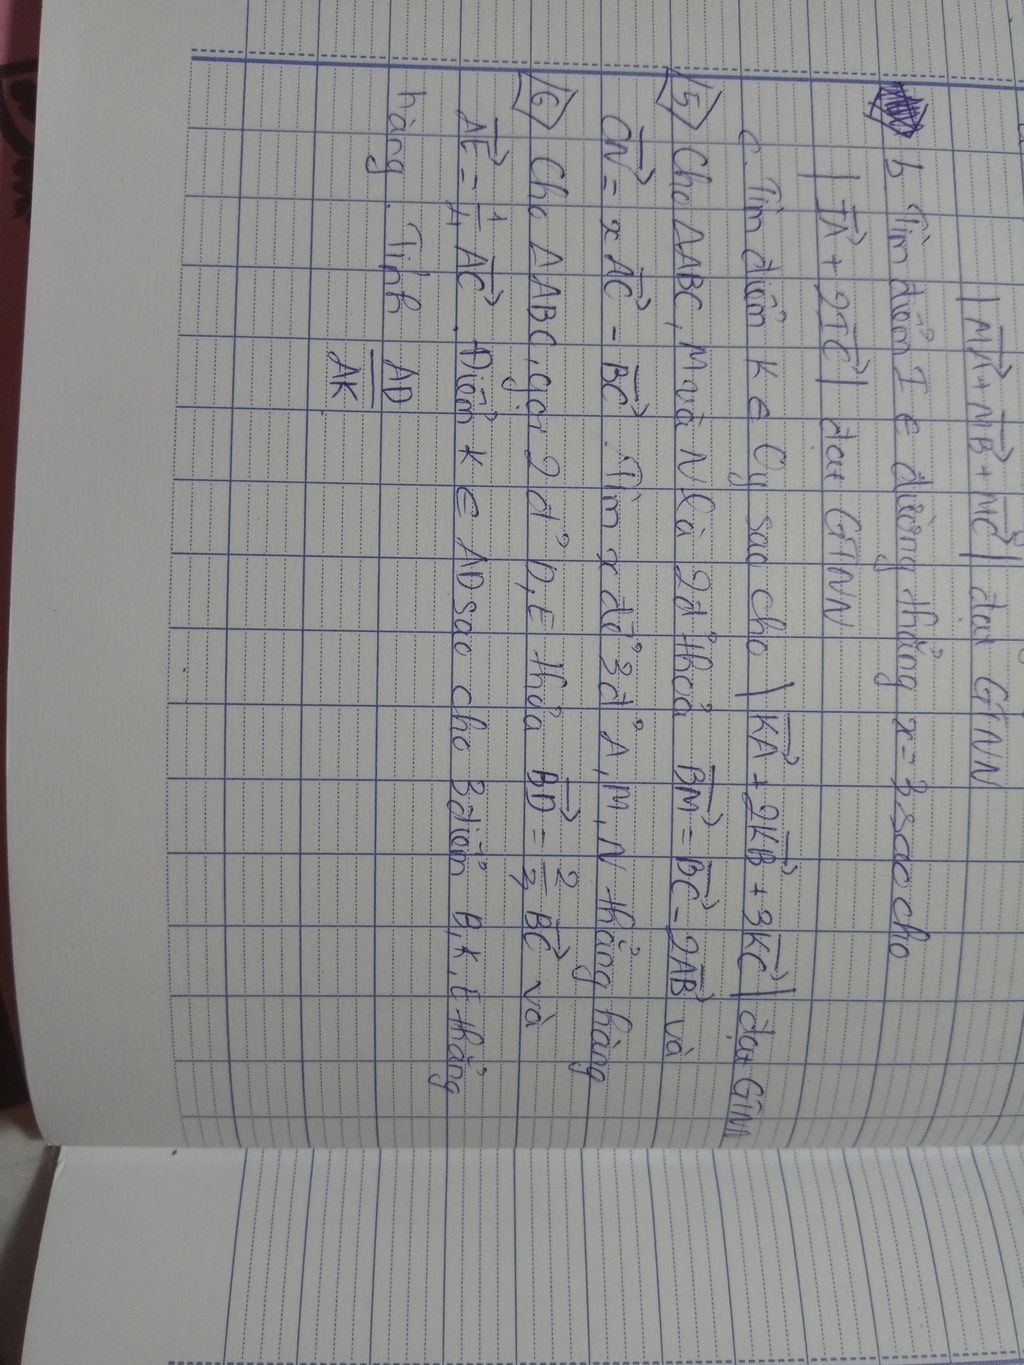 |MA→ + MB→ + MC→| đạt GTNN
b. Tìm điểm I ∈ đường thẳng x = 3 sao cho
|IA→ + 2IC→| đạt GTNN
c. Tìm điểm K ∈ Oy sao cho |KA→ + 2KB→ + 3KC→| đạt GTNN
15 Cho ΔABC, M và N là 2đ' thỏa BM→ = BC→ - 2AB→ và
CN→ = xAC→ - BC→. Tìm x để 3đ' A, M, N thẳng hàng
16 Cho ΔABC, gọi 2đ' D, E thỏa BD→ = 2/3 BC→ và
AE→ = 1/4 AC→. Điểm K ∈ AD sao cho 3 điểm B, K, E thẳng
hàng. Tính AD/AK